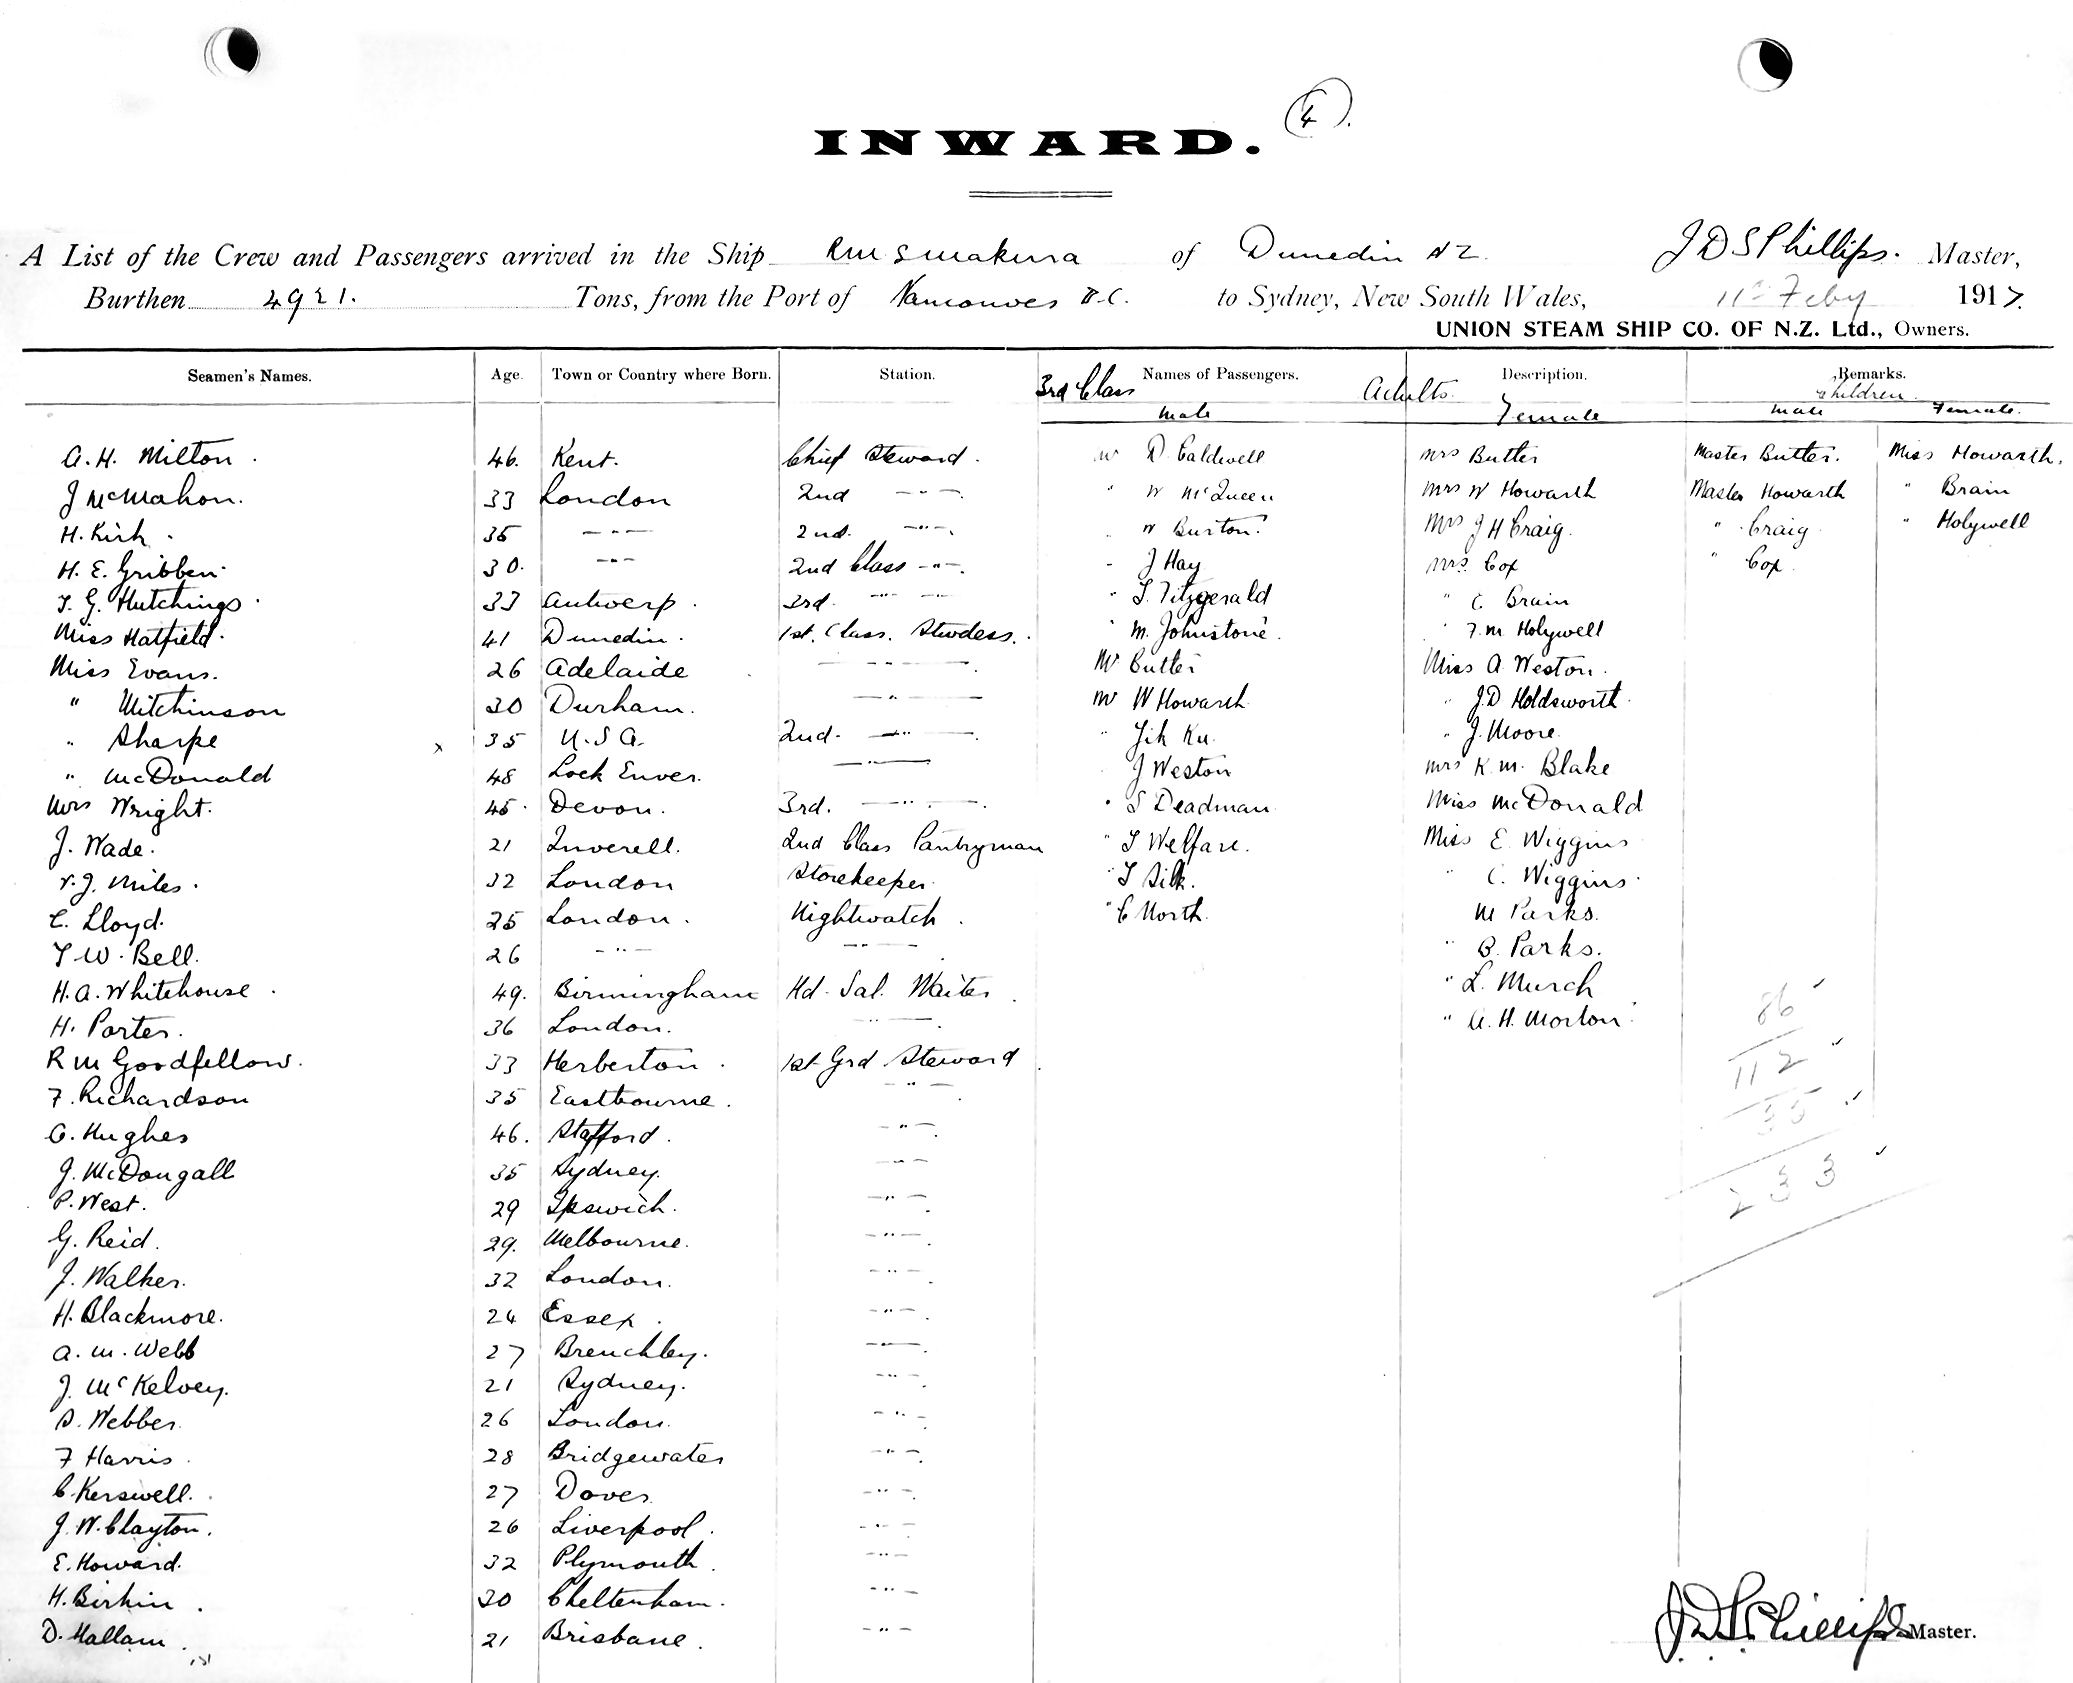 (4).
INWARD.
A List of the Crew and Passengers arrived in the Ship RMS Makura of Dunedin NZ. J D S Phillips. Master,
Burthen 4921. Tons, from the Port of Vancouver B.C. to Sydney, New South Wales, 11th Feby 1917.
UNION STEAM SHIP CO. OF N.Z. Ltd., Owners.
Seamen's Names. Age. Town or Country where Born. Station. Names of Passengers. Description. Remarks.
3rd Class Adults. Children.
male Female male Female.
A. H. Milton. 46. Kent. Chief Steward. Mr D. Caldwell Mrs Butler Master Butler. Miss Howarth.
J McMahon. 33 London 2nd —"—. " W McQueen Mrs W Howarth Master Howarth " Brain
H. Kirk. 35 —"— 2nd. —"—. " W Burton. Mrs J H Craig. " Craig " Holywell
H. E. Gribben. 30. —"— 2nd Class —"—. " J Hay Mrs. Cox " Cox.
T. G. Hutchings. 33 Antwerp. 3rd. —"— " T. Fitzgerald " C. Brain
Miss Hatfield. 41 Dunedin. 1st. Class. Stwdess. " M. Johnstone. " F. M. Holywell
Miss Evans. 26 Adelaide —"—. Mr Butler Miss A. Weston.
" Mitchinson 30 Durham. —"— Mr W Howarth " J. D Holdsworth.
" Sharpe x 35 U.S.A. 2nd. —"—. " Jih Ku. " J. Moore.
" McDonald 48 Loch Enver. —"— J Weston Mrs K. M. Blake
Mrs Wright. 45. Devon. 3rd. —"—. " S Deadman Miss McDonald
J. Wade. 21 Inverell. 2nd Class Pantryman " T Welfare. Miss E. Wiggins
V. J. Miles. 32 London Storekeeper. " T Silk. " C. Wiggins.
E. Lloyd. 25 London. Nightwatch. " C North. M Parks.
T W. Bell. 26 —"— —"—. " B. Parks.
H. A. Whitehouse. 49. Birmingham Hd. Sal. Waiter. " L. Murch
H. Porter. 36 London. —"—. " A. H. Morton. 86
R M Goodfellow. 33 Herberton. 1st Grd Steward. 112
F. Richardson 35 Eastbourne. —"—. 35
G. Hughes 46. Stafford. —"—.
J. McDougall 35 Sydney. —"— 233
P. West. 29 Ipswich. —"—.
G. Reid. 29. Melbourne. —"—.
J. Walker. 32 London. —"—.
H. Blackmore. 24 Essex. —"—.
A. M. Webb 27 Brenchley. —"—.
J. McKelvey. 21 Sydney. —"—.
S. Webber. 26 London. —"—.
F Harris 28 Bridgewater —"—.
C. Kerswell. 27 Dover —"—.
J. W. Clayton. 26 Liverpool. —"—.
E. Howard. 32 Plymouth. —"—
H. Birkin. 30 Cheltenham. —"—
D. Hallam. 21 Brisbane. —"—
J D S Phillips Master.